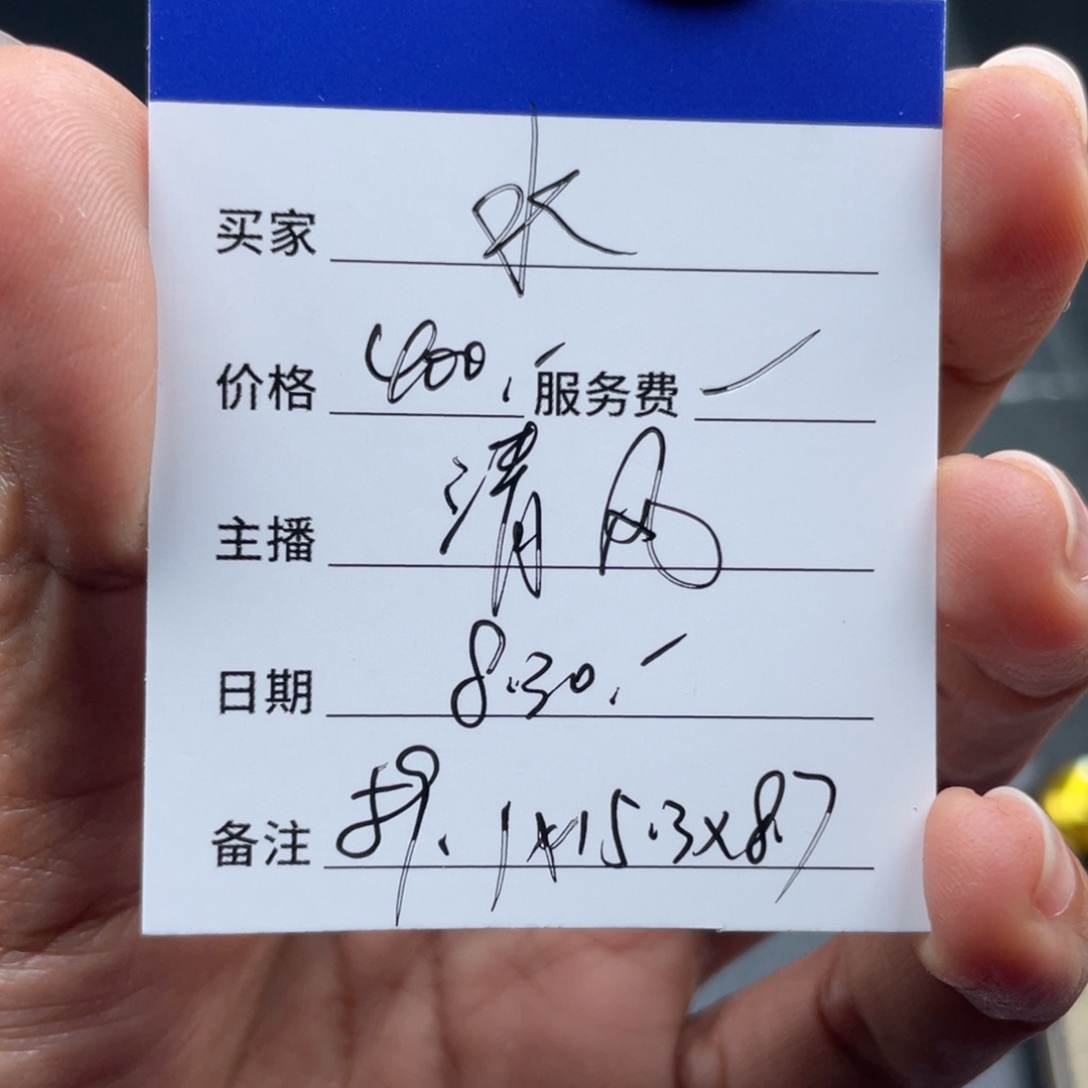 买家 水
价格 400.- 服务费 /
主播 清风
日期 8.30.-
备注 59.1x15.3x8.7